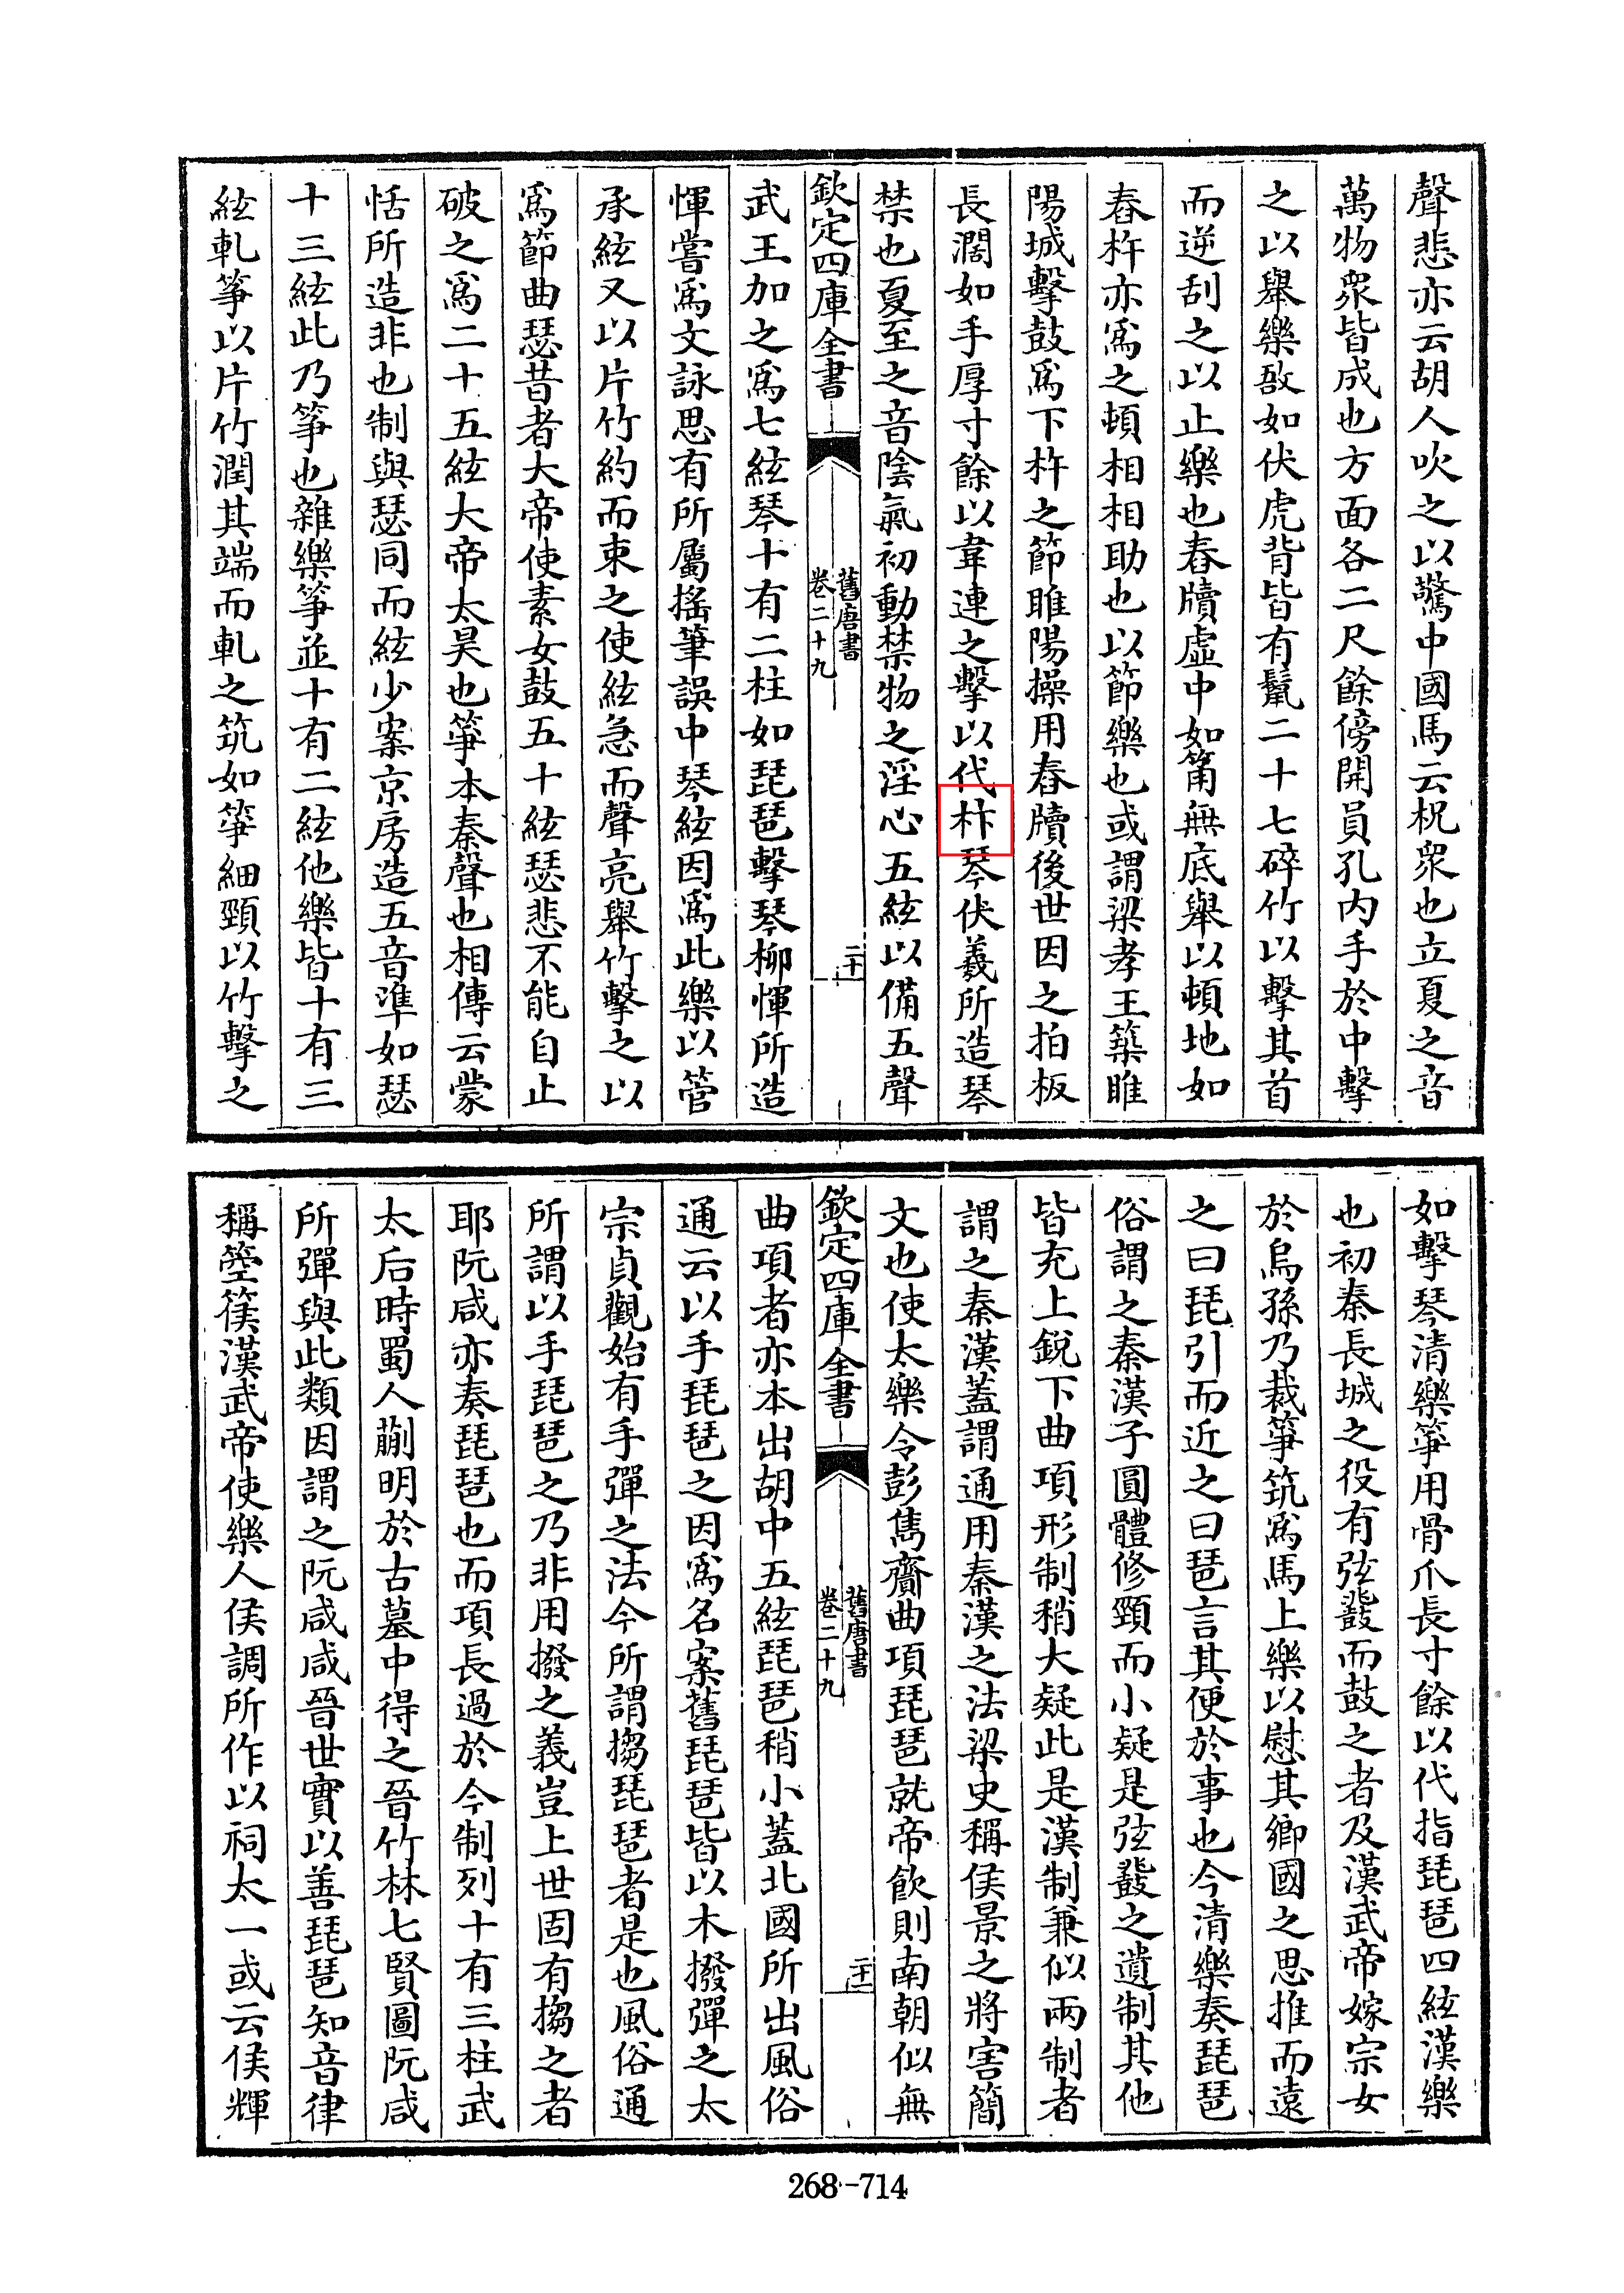 聲悲亦云胡人吹之以驚中國馬云柷衆也立夏之音
萬物衆皆成也方面各二尺餘傍開員孔内手於中擊
之以舉樂敔如伏虎背皆有鬛二十七碎竹以擊其首
而逆刮之以止樂也舂牘虛中如筩無底舉以頓地如
舂杵亦爲之頓相相助也以節樂也或謂梁孝王築睢
陽城擊鼓爲下杵之節睢陽操用舂牘後世因之拍板
長濶如手厚寸餘以韋連之擊以代抃琴伏羲所造琴
禁也夏至之音陰氣初動禁物之淫心五絃以備五聲
欽定四庫全書
舊唐書
卷二十九
二十
武王加之爲七絃琴十有二柱如琵琶擊琴柳惲所造
惲嘗爲文詠思有所屬搖筆誤中琴絃因爲此樂以管
承絃又以片竹約而束之使絃急而聲亮舉竹擊之以
爲節曲瑟昔者大帝使素女鼓五十絃瑟悲不能自止
破之爲二十五絃大帝太昊也箏本秦聲也相傳云蒙
恬所造非也制與瑟同而絃少案京房造五音準如瑟
十三絃此乃箏也雜樂箏並十有二絃他樂皆十有三
絃軋箏以片竹潤其端而軋之筑如箏細頸以竹擊之
如擊琴清樂箏用骨爪長寸餘以代指琵琶四絃漢樂
也初秦長城之役有弦鼗而鼓之者及漢武帝嫁宗女
於烏孫乃裁箏筑爲馬上樂以慰其鄉國之思推而遠
之曰琵引而近之曰琶言其便於事也今清樂奏琵琶
俗謂之秦漢子圓體修頸而小疑是弦鼗之遺制其他
皆充上銳下曲項形制稍大疑此是漢制兼似兩制者
謂之秦漢蓋謂通用秦漢之法梁史稱侯景之將害簡
文也使太樂令彭雋齎曲項琵琶就帝飲則南朝似無
欽定四庫全書
舊唐書
卷二十九
二十一
曲項者亦本出胡中五絃琵琶稍小蓋北國所出風俗
通云以手琵琶之因爲名案舊琵琶皆以木撥彈之太
宗貞觀始有手彈之法今所謂搊琵琶者是也風俗通
所謂以手琵琶之乃非用撥之義豈上世固有搊之者
耶阮咸亦奏琵琶也而項長過於今制列十有三柱武
太后時蜀人蒯明於古墓中得之晉竹林七賢圖阮咸
所彈與此類因謂之阮咸咸晉世實以善琵琶知音律
稱箜篌漢武帝使樂人侯調所作以祠太一或云侯輝
268-714